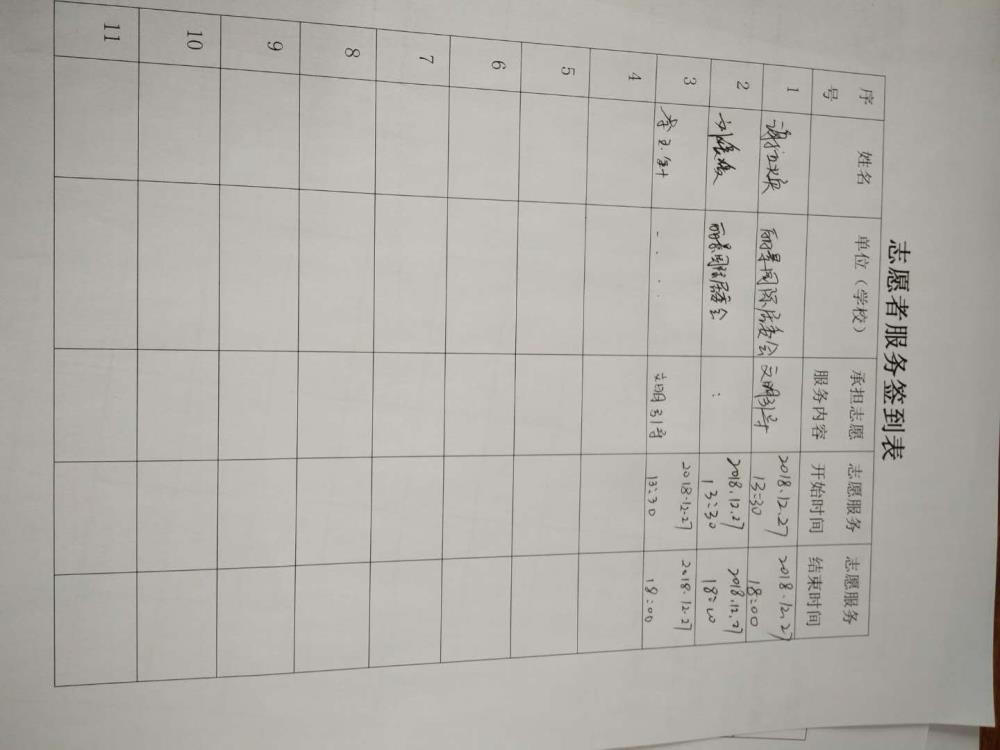 志愿者服务签到表
序号 姓名 单位（学校） 承担志愿服务内容 志愿服务开始时间 志愿服务结束时间
1 丽景国际居委会 文明引导 2018.12.27 13:30 2018.12.27 18:00
2 丽景国际居委会 : 2018.12.27 13:30 2018.12.27 18:00
3 李玉 文明引导 2018.12.27 13:30 2018.12.27 18:00
4
5
6
7
8
9
10
11